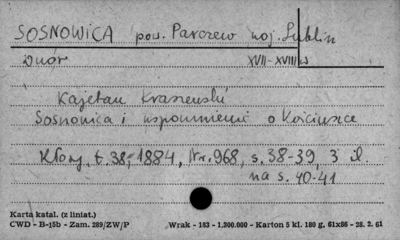 SOSNOWICA pow. Parczew woj. Lublin
dwór XVII-XVIII w
Kajetan Kraszewski
Sosnowica i wspomnienie o Kościuszce
Kłosy, t. 38, 1884, Nr. 968, s. 38-39, 3 il.
na s. 40-41
Karta katal. (z liniat.)
CWD - B-15b - Zam. 289/ZW/P Wrak - 183 - 1.200.000 - Karton 5 kl. 180 g, 61x86 - 28. 2. 61